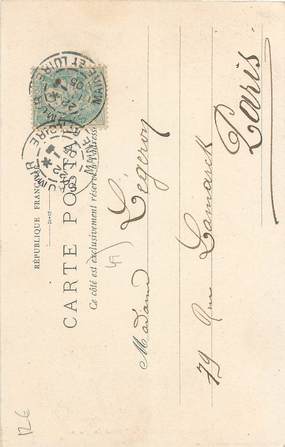 RÉPUBLIQUE FRANÇAISE
CARTE POSTALE
Ce côté est exclusivement réservé à l'adresse
MAINE ET LOIRE
Madame Légeron
79 Rue Lamarck
Paris
49
12€